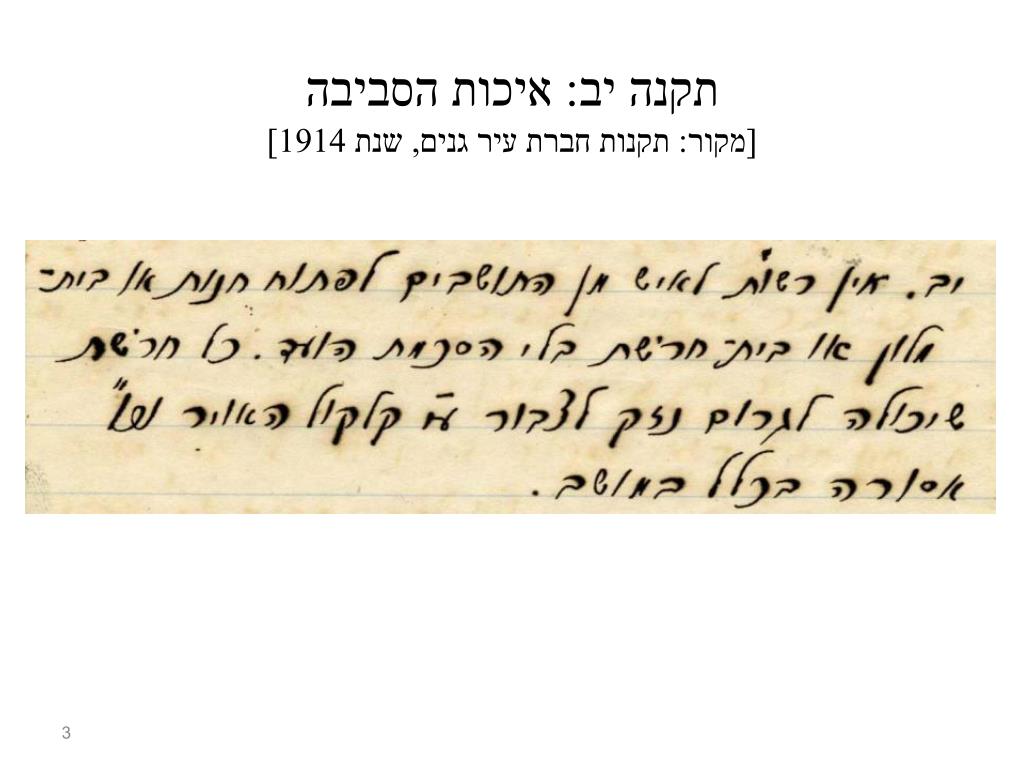 תקנה יב: איכות הסביבה
[מקור: תקנות חברת עיר גנים, שנת 1914]
יב. אין רשות לאיש מן התושבים לפתוח חנות או בית־
מלון או בית־חרשת בלי הסכמת הועד. כל חרשת
שיכולה לגרום נזק לצבור ע״י קלקול האויר וכו״
אסורה בכלל במושב.
3